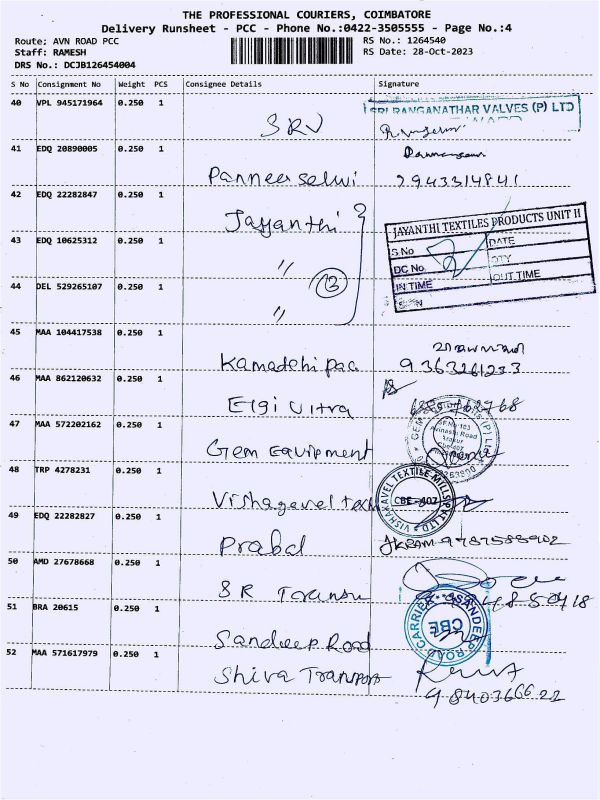 THE PROFESSIONAL COURIERS, COIMBATORE
Delivery Runsheet - PCC - Phone No.:0422-3505555 - Page No.:4
Route: AVN ROAD PCC RS No.: 1264540
Staff: RAMESH RS Date: 28-Oct-2023
DRS No.: DCJB126454004
S No Consignment No Weight PCS Consignee Details Signature
40 VPL 945171964 0.250 1 SRV SRI RANGANATHAR VALVES (P) LTD
41 EDQ 20890005 0.250 1 Panneerselvi 7943314841
42 EDQ 22282847 0.250 1 Jayanthi JAYANTHI TEXTILES PRODUCTS UNIT II
S.No DATE
43 EDQ 10625312 0.250 1 " DC No QTY
44 DEL 529265107 0.250 1 " (3) IN TIME OUT TIME
45 MAA 104417538 0.250 1 Kamadchi paa 9363261233
46 MAA 862120632 0.250 1 Elgi Ultra
47 MAA 572202162 0.250 1 Gem Equipment
48 TRP 4278231 0.250 1 Vishagavel tex VISHAKAVEL TEXTILE MILLS PVT LTD CBE-402
49 EDQ 22282827 0.250 1 Prabal 9787588902
50 AMD 27678668 0.250 1 SR Transu
51 BRA 20615 0.250 1 Sandeep Road SANDEEP ROAD CARRIER CBE
52 MAA 571617979 0.250 1 Shiva Transport
9840366622